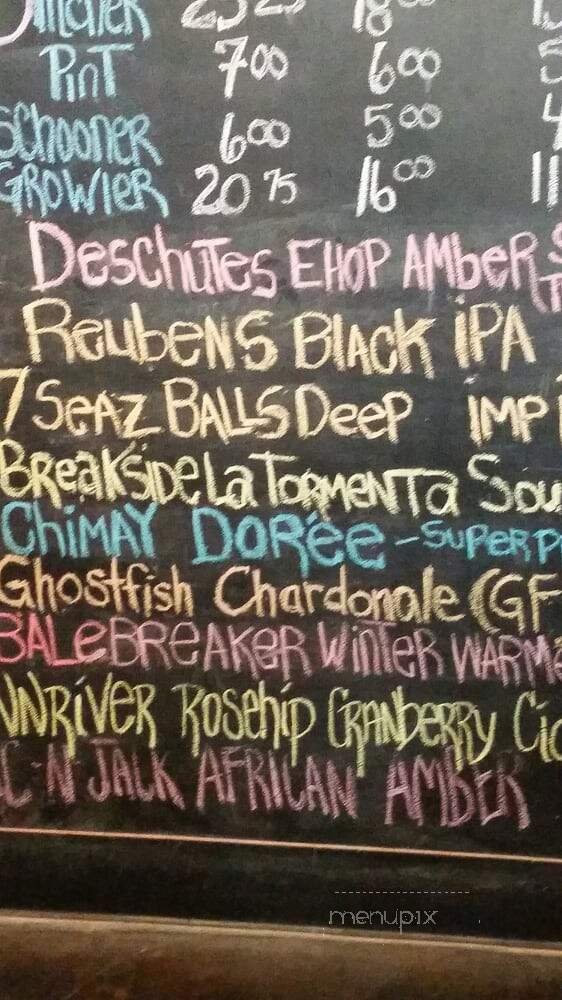 Pint 7.00 6.00 5
Schooner 6.00 5.00 4
Growler 20.75 16.00 11
Deschutes EHOP Amber
Reubens Black iPA
7 Seaz Balls Deep iMP
Breakside La Tormenta Sou
Chimay Dorée - Super P
Ghostfish Chardonale (GF
BaleBreaker Winter Warme
nnRiver Rosehip Cranberry Cid
c-n-Jack African Amber
menupix